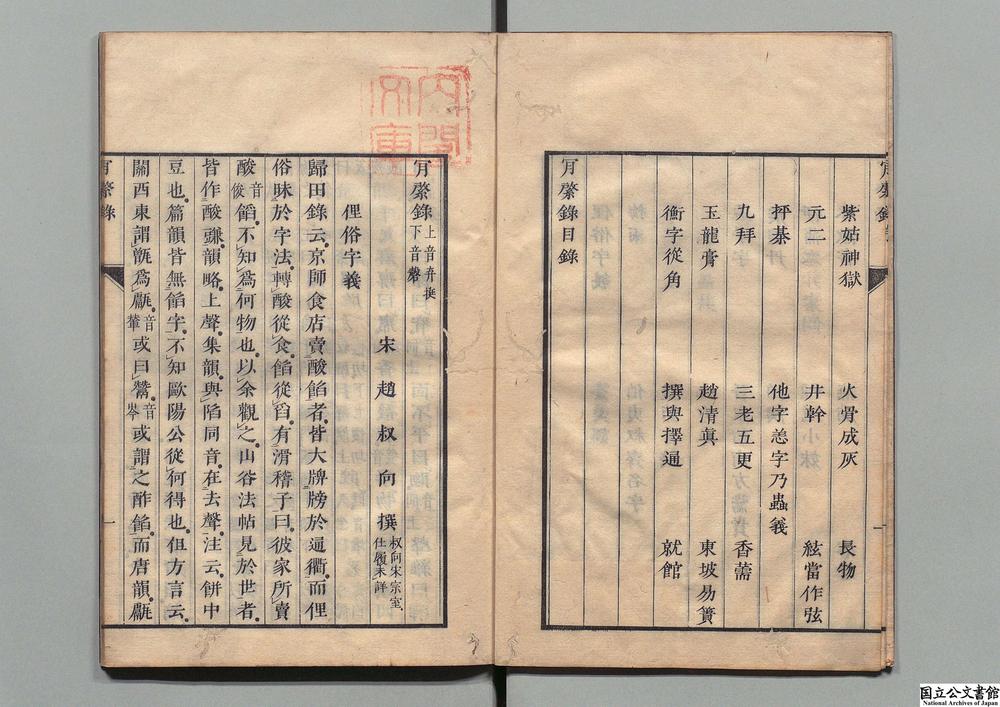 紫姑神獄 火骨成灰 長物
元二 井幹 絃當作弦
抨棊 他字恙字乃蟲義
九拜 三老五更 香薷
玉龍膏 趙清眞 東坡易簀
衡字從角 撰與擇通 就館
肎綮錄目錄
肎綮錄 上音弁撰 下音磬
宋 趙叔向 撰 叔向宋宗室仕履未詳
俚俗字義
歸田錄云京師食店賣酸餡者皆大牌牓於通衢而俚
俗昧於字法轉酸從食餡從臽有滑稽子曰彼家所賣
酸音俊餡不知爲何物也以余觀之山谷法帖見於世者
皆作酸豏韻略上聲集韻與陷同音在去聲注云餅中
豆也篇韻皆無餡字不知歐陽公從何得也但方言云
關西東謂甑爲甗音輦或曰鬵音岑或謂之酢餾而唐韻甗
肎綮錄
一
内閣文庫
国立公文書館
National Archives of Japan